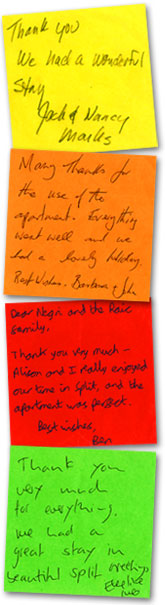 Thank you
We had a wonderful
stay
Jack & Nancy
Marks
Many Thanks for
the use of the
apartment. Everything
went well and we
had a lovely holiday.
Best Wishes. Barbara & John
Dear Negri and the Raic
family,
Thank you very much -
Alison and I really enjoyed
our time in Split, and the
apartment was perfect.
Best wishes,
Ben
Thank you
very much
for everything.
we had a
great stay in
beautiful Split
greetings